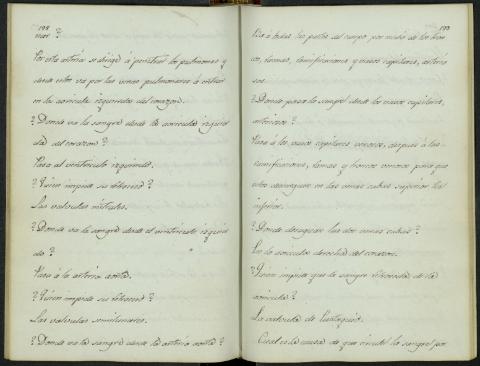 198
nar ?
Por esta arteria se dirigé á penetrar los pulmones y
desde estos va por las venas pulmonares á entrar
en la auricula izquierda del corazon.
? Donde va la sangre desde la auricula izquier
da del corazon ?
Pasa al ventriculo izquierdo.
? Quien impide su retroceso ?
Las valvulas mitrales.
? Donde va la sangre desde el ventriculo izquier
do ?
Pasa á la arteria aorta.
? Quien impide su retroceso ?
Las valvulas semilunares.
? Donde va la sangre desde la arteria aorta ?
199
Va á todas las partes del cuerpo por medio de los tron
cos, ramas, ramificaciones y vasos capilares, arterio
sos.
? Donde pasa la sangre desde los vasos capilares,
arteriosos ?
Pasa á los vasos capilares venosos, despues á las
ramificaciones, ramas y troncos venosos para que
estos desaguen en las venas cabas superior é
inferior.
? Donde desaguan las dos venas cabas ?
En la auricula derecha del corazon.
? Quien impide que la sangre retroceda de la
auricula ?
La valvula de Eustaquio.
Cual es la causa de que circule la sangre por